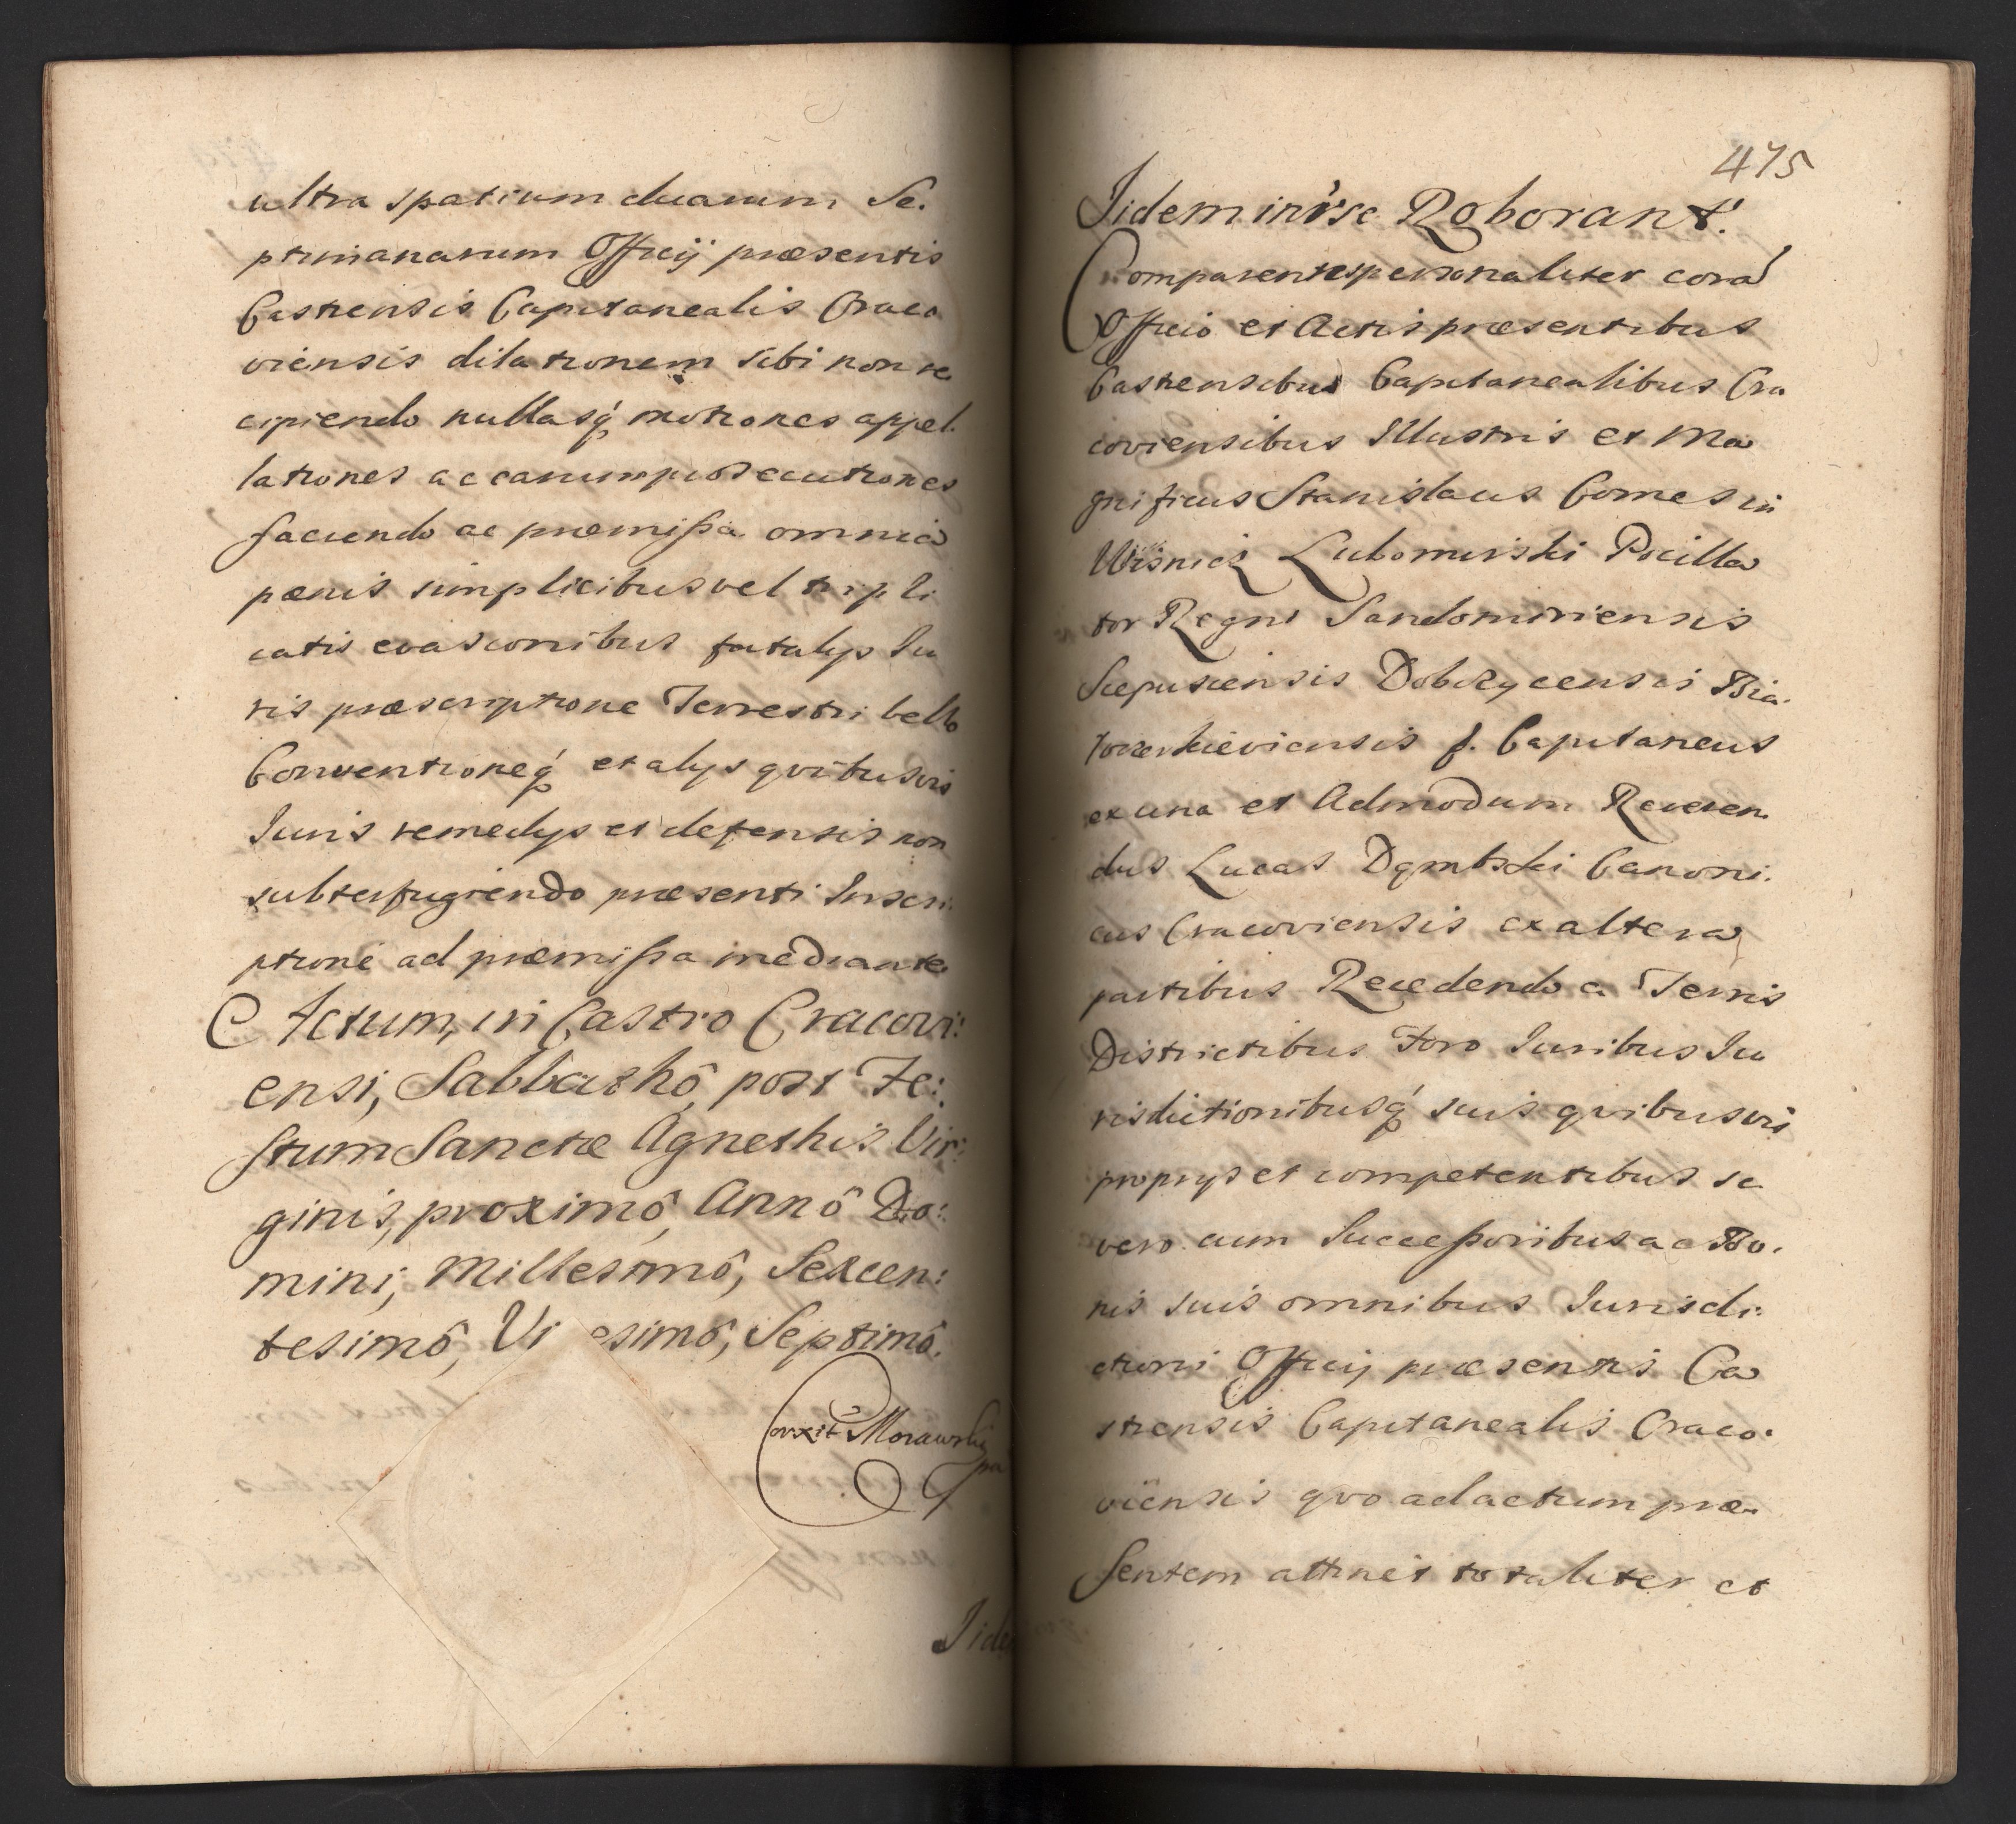 ultra spatium duarum Se.
ptimanarum Officij præsentis
Castrensis Capitanealis Craco
viensis dilationem sibi non re
cipiendo nullasq́ motiones appel.
lationes ac earum prosecutiones
faciendo ac præmissa omnia
pænis simplicibus vel tripli
catis evasionibus fatalijs Iu
ris præscriptione Terrestri bello
Conventioneq́ et alijs qvibusvis
Iuris remedijs et defensis non
subterfugiendo præsenti Inscri.
ptione ad præmissa mediante
Actum, in Castro Cracovi:
ensi, Sabbathô post Fe:
stum Sanctæ Agnethis Vir:
ginis, proximô, Annô Do:
mini, Millesimô, Sexcen:
tesimô, Vi esimô, Septimô.
Corrxit Morawski
Iide
475
Iidem in se Roborant.
Comparentes personaliter corã
Officio et Actis præsentibus
Castrensibus Capitanealibus Cra
coviensibus Illustris et Ma
gnificus Stanislaus Comes in
Wisnicz Lubomirski Pocilla
tor Regni Sandomiriensis
Scepusiensis Dobczycensis Bia.
łocerkieviensis f. Capitaneus
ex una et Admodum Reveren.
dus Lucas Dąmbski Canoni.
cus Cracoviensis ex altera
partibus Recedendo a Terris
Districtibus Foro Iuribus Iu
risdictionibusq́ suis qvibusvis
proprijs et competentibus se
vero cum Successoribus ac Bo.
nis suis omnibus Iurisdi.
ctioni Officij præsentis Ca
strensis Capitanealis Craco.
viensis qvo ad actum præ.
sentem attinet totaliter et